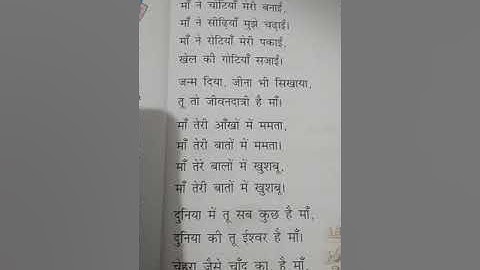 माँ ने चोटियाँ मेरी बनाई,
माँ ने सीढ़ियाँ मुझे चढ़ाईं।
माँ ने रोटियाँ मेरी पकाईं,
खेल की गोटियाँ सजाईं।
जन्म दिया, जीना भी सिखाया,
तू तो जीवनदात्री है माँ।
माँ तेरी आँखों में ममता,
माँ तेरी बातों में ममता।
माँ तेरे बालों में खुशबू,
माँ तेरी बातों में खुशबू।
दुनिया में तू सब कुछ है माँ,
दुनिया की तू ईश्वर है माँ।
चेहरा जैसे चाँद का है माँ